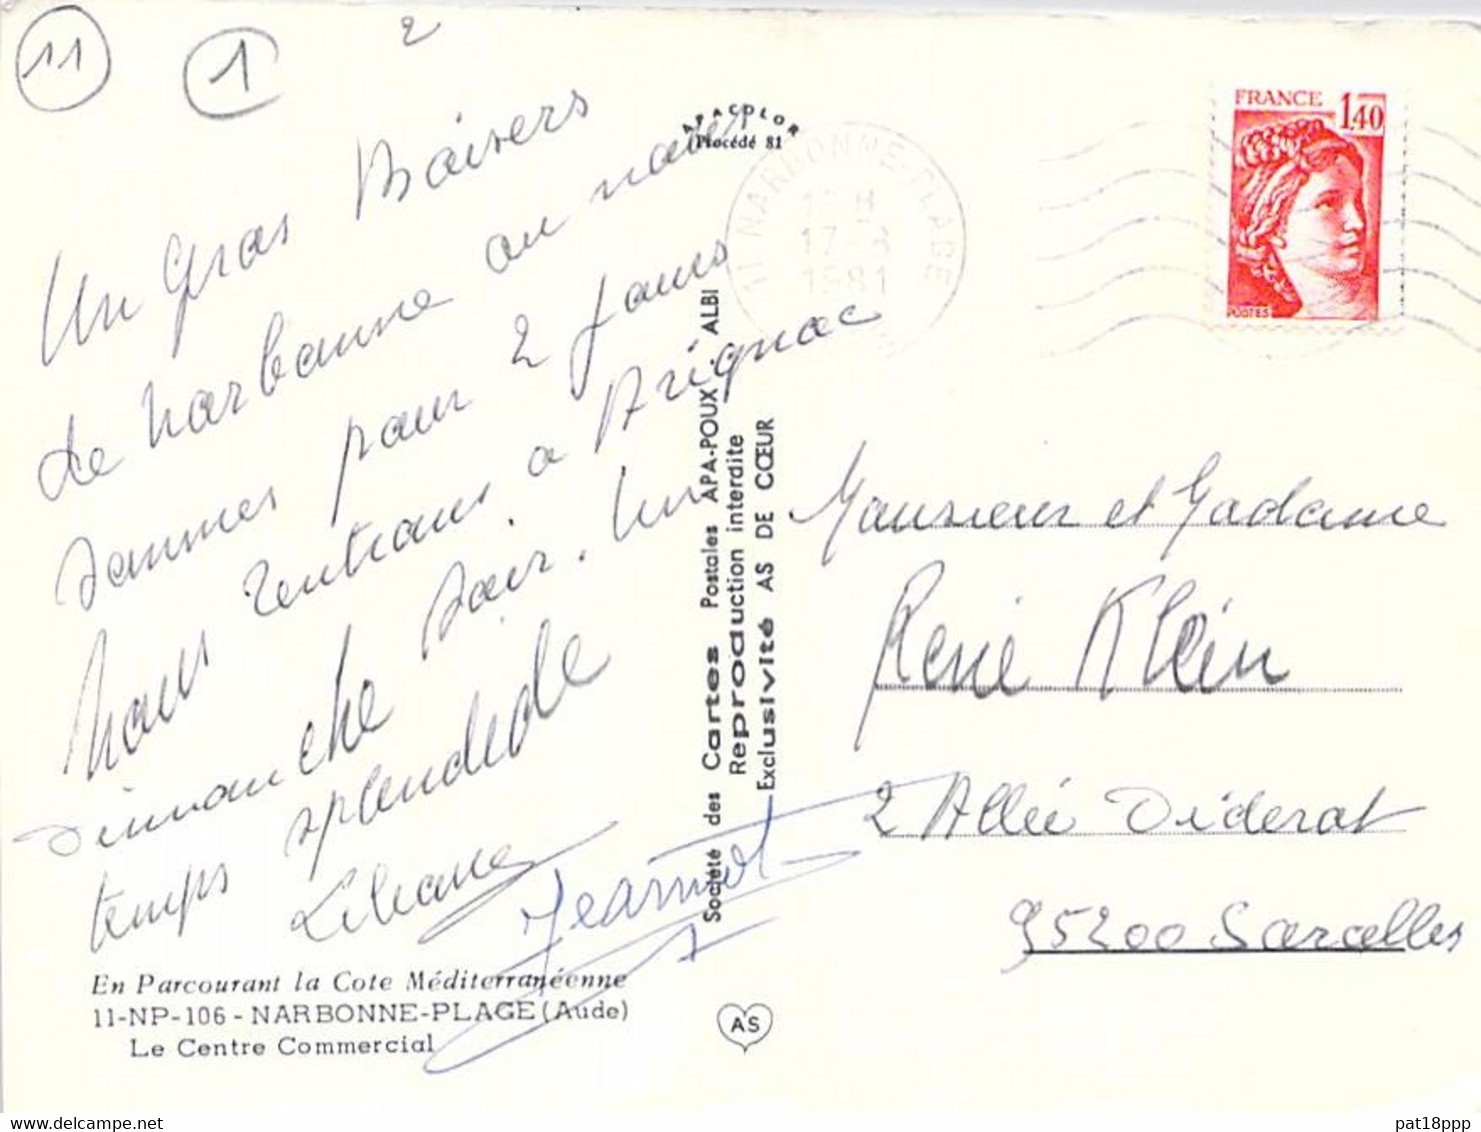 11
1
2
Un gros Baisers
de Narbonne ou nous
sommes pour 2 jours
nous rentrons a Brignac
dimanche soir. Un
temps splendide
Liliane Jeannot
En Parcourant la Cote Méditerranéenne
11-NP-106 - NARBONNE-PLAGE (Aude)
Le Centre Commercial
APACOLOR
Procédé 81
Société des Cartes Postales APA-POUX - ALBI
Reproduction interdite
Exclusivité AS DE CŒUR
AS
11 NARBONNE-PLAGE
17-8
1981
FRANCE 1,40
POSTES
Monsieur et Madame
René Klein
2 Allée Diderot
95200 Sarcelles
pat18ppp